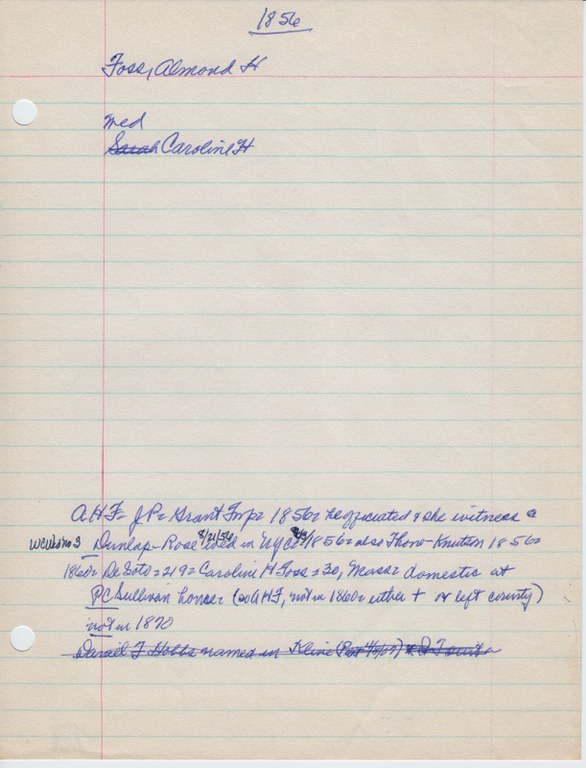 1856
Foss, Almond H
med
Sarah Caroline H
AHF= JP= Grant Twp= 1856= he officiated & she witness @
WCWkbno3 Dunlap-Rose wed in 8/21/56 1856= also Thoro-Knutson 1856=
1860= DeSoto= 219= Caroline H Foss= 30, Mass= domestic at
PC Sullivan house= (no AHF, not in 1860= either + or left county)
not in 1870
Daniel T Hobbs named in Kline